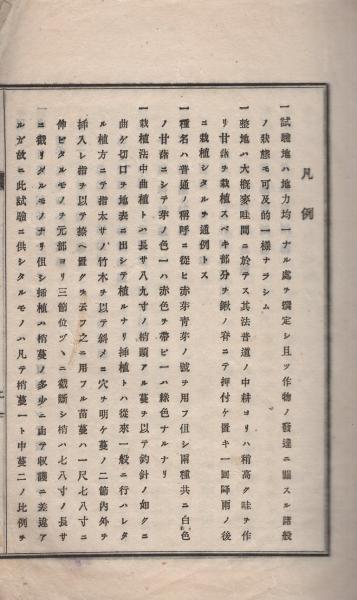 凡例
一試驗地ハ地力均一ナル處ヲ撰定シ且ツ作物ノ發達ニ關スル諸般
ノ狀態モ可及的一樣ナラシム
一整地ハ大槪麥畦間ニ於テス其法普通ノ中耕ヨリハ稍高ク畦ヲ作
リ甘藷ヲ栽植スベキ部分ヲ鍬ノ脊ニテ押付ケ置キ一回降雨ノ後
ニ栽植シタルヲ通例トス
一種名ハ普通ノ稱呼ニ從ヒ赤芽靑芽ノ號ヲ用フ但シ兩種共ニ白色
ノ甘藷ニシテ芽ノ色一ハ赤色ヲ帶ビ一ハ綠色ナルナリ
一栽植法中曲植トハ長サ八九寸ノ梢頭アル蔓ヲ以テ釣針ノ如クニ
曲ゲ切口ヲ地表ニ出シテ植ルナリ挿植トハ從來一般ニ行ハレタ
ル植方ニテ指太サノ竹木ヲ以テ斜メニ穴ヲ明ケ蔓ノ二節內外ヲ
挿入レ指ヲ以テ揍ヘ置クヲ云フ之ニ用フル苗蔓ハ一尺七八寸ニ
伸ビタルモノヲ元部ヨリ三節位ヅヽニ截斷シ梢ハ七八寸ノ長サ
ニ截リタルモノナリ但シ挿植ハ梢蔓ノ多少ニ由テ收穫ニ差違ア
ルガ故ニ此試驗ニ供シタルモノハ凡テ梢蔓一ト中蔓二ノ比例ヲ